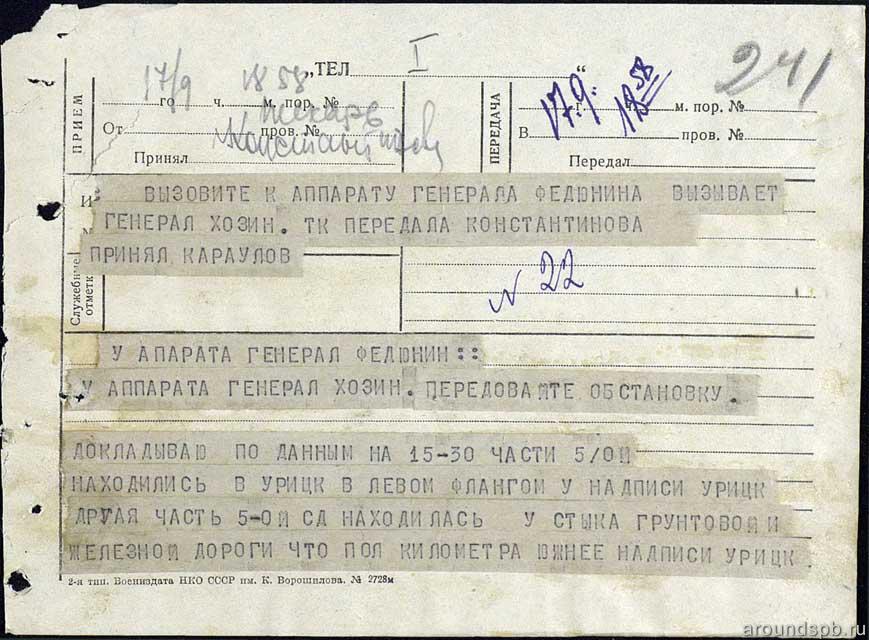 17/9 18 58 „ТЕЛ I “ 17.9. 18 58 241
ПРИЕМ
го ч. м. пор. №
От пров. №
Принял
ПЕРЕДАЧА
г. ч. м. пор. №
В пров. №
Передал
: ВЫЗОВИТЕ К АППАРАТУ ГЕНЕРАЛА ФЕДЮНИНА ВЫЗЫВАЕТ
ГЕНЕРАЛ ХОЗИН. ТК ПЕРЕДАЛА КОНСТАНТИНОВА
ПРИНЯЛ КАРАУЛОВ
Служебные отметки
N 22
У АПАРАТА ГЕНЕРАЛ ФЕДЮНИН ::
У АППАРАТА ГЕНЕРАЛ ХОЗИН. ПЕРЕДОВАЙТЕ ОБСТАНОВКУ.
ДОКЛАДЫВАЮ ПО ДАННЫМ НА 15-30 ЧАСТИ 5/ОЙ
НАХОДИЛИСЬ В УРИЦК В ЛЕВОМ ФЛАНГОМ У НАДПИСИ УРИЦК
ДРУГАЯ ЧАСТЬ 5-ОЙ СД НАХОДИЛАСЬ У СТЫКА ГРУНТОВОЙ И
ЖЕЛЕЗНОЙ ДОРОГИ ЧТО ПОЛ КИЛОМЕТРА ЮЖНЕЕ НАДПИСИ УРИЦК
2-я тип. Воениздата НКО СССР им. К. Ворошилова. № 2728м
aroundspb.ru